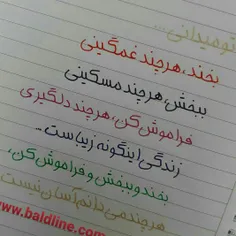 تو میدانی...
بخند، هرچند غمگینی
ببخش، هرچند مسکینی
فراموش کن، هرچند دلگیری
زندگی اینگونه زیباست..
بخند و ببخش و فراموش کن،
هرچند می دانم آسان نیست
www.baldline.com